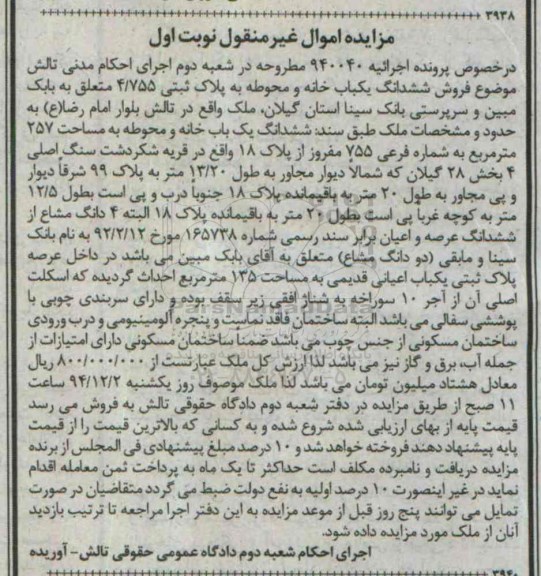 ۳۹۳۸
مزایده اموال غیر منقول نوبت اول
درخصوص پرونده اجرائیه ۹۴۰۰۴۰ مطروحه در شعبه دوم اجرای احکام مدنی تالش
موضوع فروش ششدانگ یکباب خانه و محوطه به پلاک ثبتی ۴/۷۵۵ متعلق به بابک
مبین و سرپرستی بانک سینا استان گیلان، ملک واقع در تالش بلوار امام رضا(ع) به
حدود و مشخصات ملک طبق سند: ششدانگ یک باب خانه و محوطه به مساحت ۲۵۷
مترمربع به شماره فرعی ۷۵۵ مفروز از پلاک ۱۸ واقع در قریه شکردشت سنگ اصلی
۴ بخش ۲۸ گیلان که شمالاً دیوار مجاور به طول ۱۳/۲۰ متر به پلاک ۹۹ شرقاً دیوار
و پی مجاور به طول ۲۰ متر به باقیمانده پلاک ۱۸ جنوباً درب و پی است بطول ۱۲/۵
متر به کوچه غرباً پی است بطول ۲۰ متر به باقیمانده پلاک ۱۸ البته ۴ دانگ مشاع از
ششدانگ عرصه و اعیان برابر سند رسمی شماره ۱۶۵۷۳۸ مورخ ۹۲/۲/۱۲ به نام بانک
سینا و مابقی (دو دانگ مشاع) متعلق به آقای بابک مبین می باشد در داخل عرصه
پلاک ثبتی یکباب اعیانی قدیمی به مساحت ۱۳۵ مترمربع احداث گردیده که اسکلت
اصلی آن از آجر ۱۰ سوراخه به شناژ افقی زیر سقف بوده و دارای سربندی چوبی با
پوششی سفالی می باشد البته ساختمان فاقد نماست و پنجره آلومینیومی و درب ورودی
ساختمان مسکونی از جنس چوب می باشد ضمنا ساختمان مسکونی دارای امتیازات از
جمله آب، برق و گاز نیز می باشد لذا ارزش کل ملک عبارتست از ۸۰۰/۰۰۰/۰۰۰ ریال
معادل هشتاد میلیون تومان می باشد لذا ملک موصوف روز یکشنبه ۹۴/۱۲/۲ ساعت
۱۱ صبح از طریق مزایده در دفتر شعبه دوم دادگاه حقوقی تالش به فروش می رسد
قیمت پایه از بهای ارزیابی شده شروع شده و به کسانی که بالاترین قیمت را از قیمت
پایه پیشنهاد دهند فروخته خواهد شد و ۱۰ درصد مبلغ پیشنهادی فی المجلس از برنده
مزایده دریافت و نامبرده مکلف است حداکثر تا یک ماه به پرداخت ثمن معامله اقدام
نماید در غیر اینصورت ۱۰ درصد اولیه به نفع دولت ضبط می گردد متقاضیان در صورت
تمایل می توانند پنج روز قبل از موعد مزایده به این دفتر اجرا مراجعه تا ترتیب بازدید
آنان از ملک مورد مزایده داده شود.
اجرای احکام شعبه دوم دادگاه عمومی حقوقی تالش - آوریده
۳۹۴۰